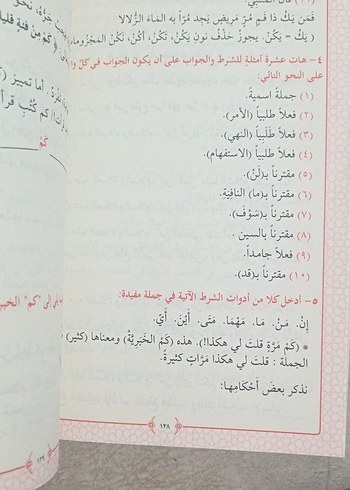 فَمَن يَكُ ذا فَمٍ مُرٍّ مَرِيضٍ يَجِد مُرّاً به المَاءَ الزُّلالا
( يَكُ = يَكُنْ. يجوزُ حذفُ نونِ يَكُنْ، تَكُنْ، أَكُنْ، نَكُنْ المَجْزُومة
٤ - هات عشرة أمثلةٍ للشرط والجواب على أن يكون الجواب في كلّ
على النحو التالي:
(١) جملةً اسميةً.
(٢) فعلاً طلبياً (الأمر).
(٣) فعلاً طَلَبياً (النهي).
(٤) فعلاً طلبياً (الاستفهام).
(٥) مقترناً بـ(لَنْ).
(٦) مقترناً بـ(ما) النافِيَةِ.
(٧) مقترناً بـ(سَوْفَ).
(٨) مقترناً بالسين.
(٩) فعلاً جامداً.
(١٠) مقترناً بـ(قد).
٥ - أدخل كلا من أدوات الشرط الآتية في جملة مفيدة:
إنْ. مَنْ. مَا. مَهْمَا. مَتَى. أَيْنَ. أَيّ.
* (كَمْ مَرَّةٍ قلتَ لي هكذا!). هذه (كَمْ الخَبَرِيَّةُ) ومعناها (كثير)
الجملة : قلتَ لي هكذا مَرَّاتٍ كثيرةً.
نذكر بعضَ أَحْكامِها:
١٢٨
كَمْ